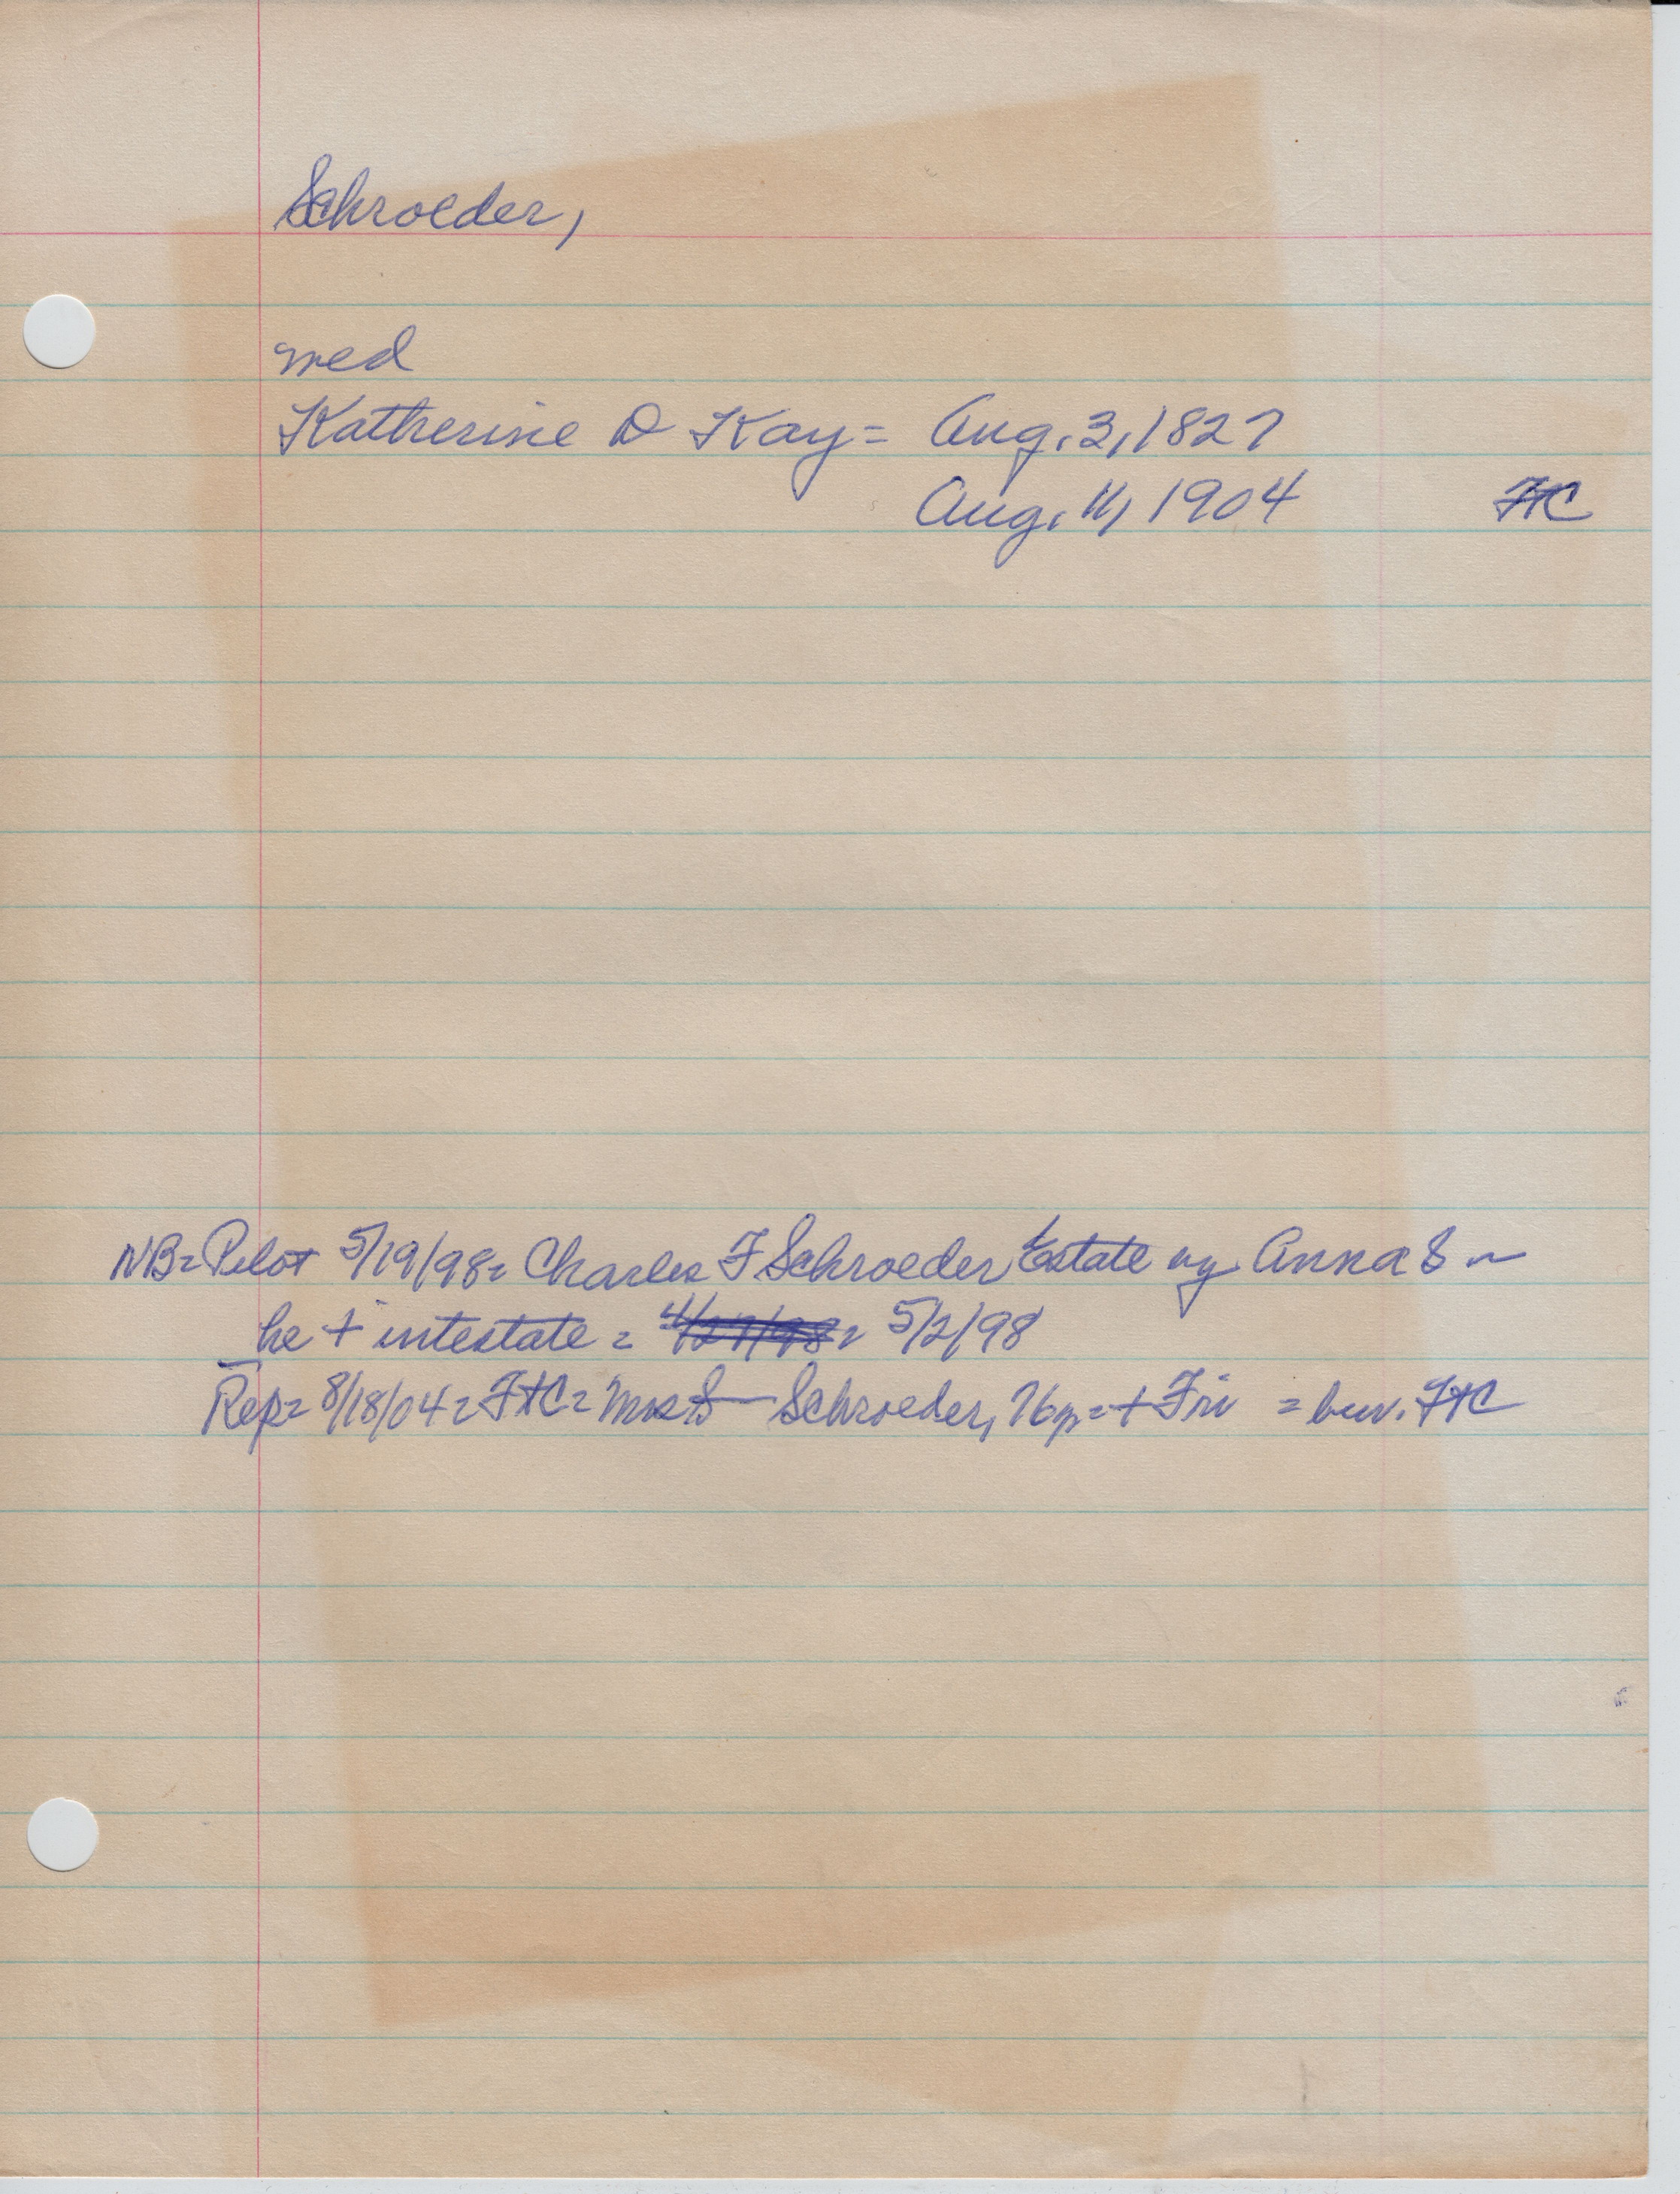 Schroeder,
med
Katherine D Kay = Aug. 3, 1827
Aug. 11, 1904 FtC
NB = Pilot 5/19/98 = Charles F Schroeder Estate by Anna S
he + intestate = 4/27/98 = 5/2/98
Rep = 8/18/04 = FtC = Mrs S— Schroeder, 76 = + Fri = bur. FtC